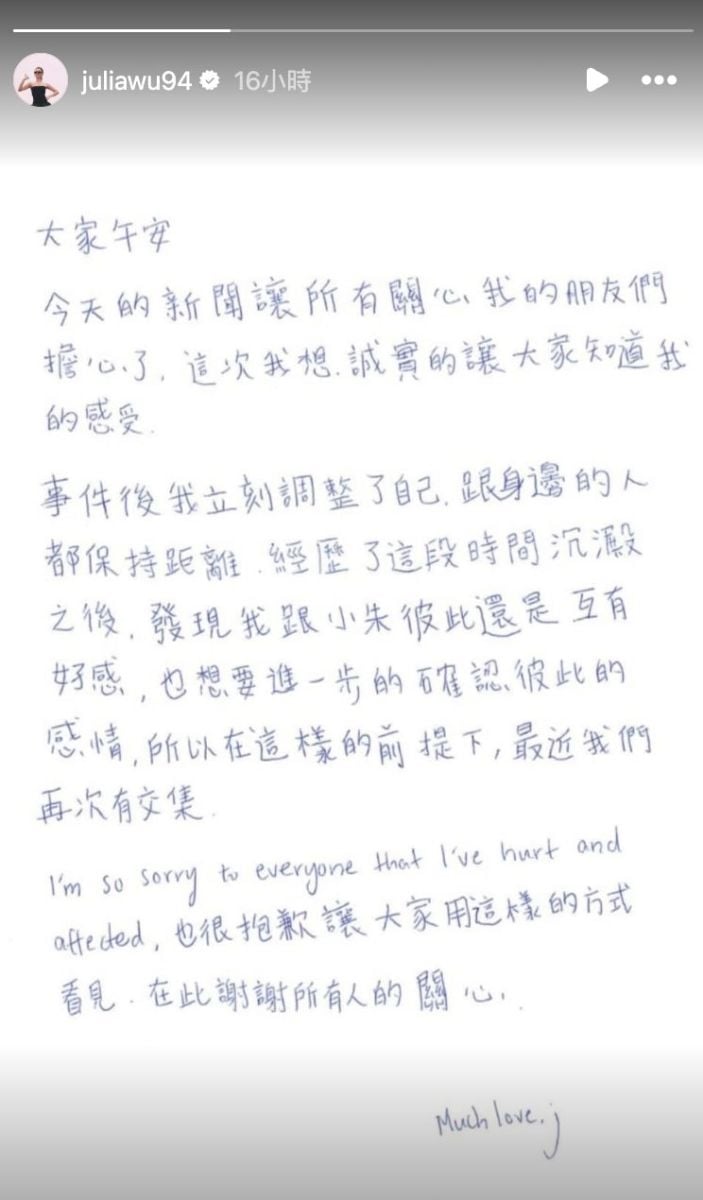 juliawu94 16小時
大家午安
今天的新聞讓所有關心我的朋友們
擔心了, 這次我想.誠實的讓大家知道我
的感受.
事件後我立刻調整了自己.跟身邊的人
都保持距離.經歷了這段時間沉澱
之後, 發現我跟小朱彼此還是互有
好感, 也想要進一步的確認彼此的
感情, 所以在這樣的前提下, 最近我們
再次有交集.
I'm so sorry to everyone that I've hurt and
affected, 也很抱歉讓大家用這樣的方式
看見.在此謝謝所有人的關心.
Much love. j